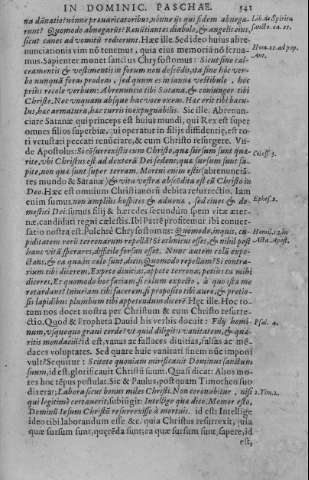 IN DOMINIC. PASCHAE. 541
na dānatissimae praeuaricatoribus, non ijs qui fidem abnega-
runt? Quomodo abnegarūt? Renūtiantes diabolo, & angelis eius,
sicut canes ad vomitū redierunt. Hæc ille. Sed ideo huius abre-
nunciationis vim nō tenemus, quia eius memoriā nō seruа-
mus. Sapienter monet sanctus Chrysostomus: Sicut sine cal-
ceamentis & vestimentis in forum nen descēdis, ita sine hoc ver-
bo nunquā foras prodeas, sed quum in ianuae vestibulo, hoc
prius recole verbum: Abrenuncio tibi Satana, & coniungor tibi
Christe. Nec vnquam absque hac voce exeas. Hæc erit tibi bacu-
lus, hæc armatura, hæc turris inexpugnabilis. Sic ille. Abrenun-
ciare Satanae qui princeps est huius mundi, qui Rex est super
omnes filios superbiae, qui operatur in filijs diffidentiae, est to-
ti vetustati peccati renūciare, & cum Christo resurgere. Vn-
de Apostolus: Si cōsurrexistis cum Christo, quae sursum sunt quae-
rite, vbi Christus est ad dexterā Dei sedens, quae sursum sunt sa-
pite, non quae sunt super terram. Mortui enim estis (abrenuntiā-
tes mundo & Satanae) & vita vestra abscōdita est cū Christo in
Deo. Hæc est omnium Christianorū debita resurrectio. Iam
enim sumus, non amplius hospites & aduenae, sed ciues & do-
mestici Dei: sumus filij & hæredes secundum spem vitae aeter-
nae, candidati regni caelestis. Ibi Patrē proficemur: ibi conuer-
satio nostra est. Pulchrè Chrysostomus: Quomodo, inquis, cu-
piditatem verū terrenarum repellā? Si ethnicus esses, & nihil post
hanc vitā sperares, difficile forsan esset. Nunc autem coelū expe-
ctans, & ea quae in caelis sunt, dicis: Quomodo repellam? Si contra-
rium tibi dicerem, Expete diuitias, appete terrena, petitis tu nobis
diceret, Et quomodo hoc faciam, si caelum expecto, & quo ista me
retardant? iniuriam tibi facerem, si proposito tibi auro, & pretio-
sis lapidibus plumbum tibi appetendum dicerē? Hęc ille. Hoc to-
tum nos docet nostra per Christum & cum Christo resurre-
ctio. Quod & Propheta Dauid his verbis docuit: Fily homi-
num, vsquequo graui corde? vt quid diligitis vanitatem, & quae-
ritis mendaciū? id est, vanas ac fallaces diuitias, falsas ac mē-
daces voluptates. Sed quare huic vanitati finem nūc imponi
vult? Sequitur: Scitote quoniam mirificauit Dominus sanctum
suum, id est, glorificauit Christū suum. Quasi dicat: Alios mo-
res hoc tēpus postulat. Sic & Paulus, postquam Timotheo sua-
dixerat: Labora sicut bonus miles Christi. Non coronabitur, nisi
qui legitimè certauerit, subiungit: Intellige quae dico. Memor esto,
Dominū Iesum Christū resurrexisse à mortuis. id est: Intellige
ideo tibi laborandum esse &c. quia Christus resurrexit, quia
quae sursum sunt, quęrēda sunt: ea quae sursum sunt, sapere, id
est,
Lib. de Spiritu
sancto. ca. 11.
Hom. 21. ad pop.
Ant.
Coloss. 3.
Ephes. 2.
Psal. 4.
2. Tim. 2.